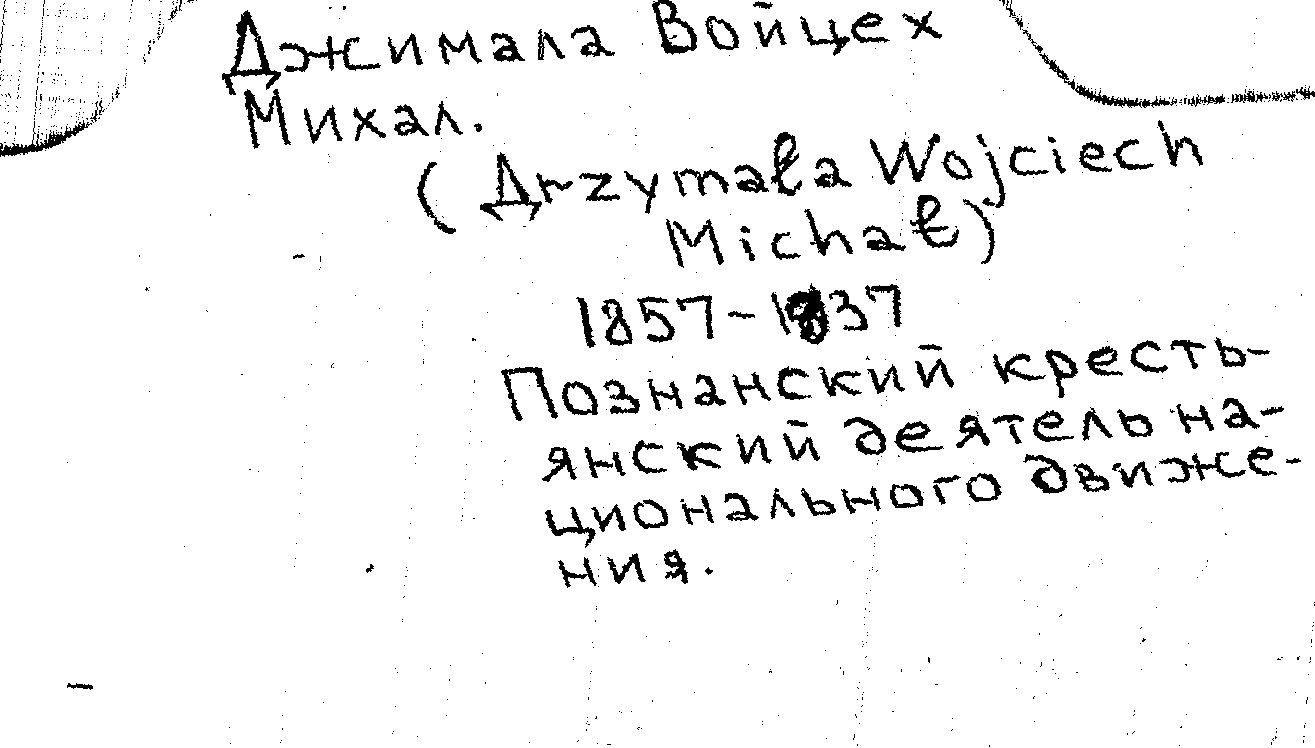 Джимала Войцех
Михал.
(Дrzymała Wojciech
Michał)
1857-1937
Познанский кресть-
янский деятель на-
ционального движе-
ния.